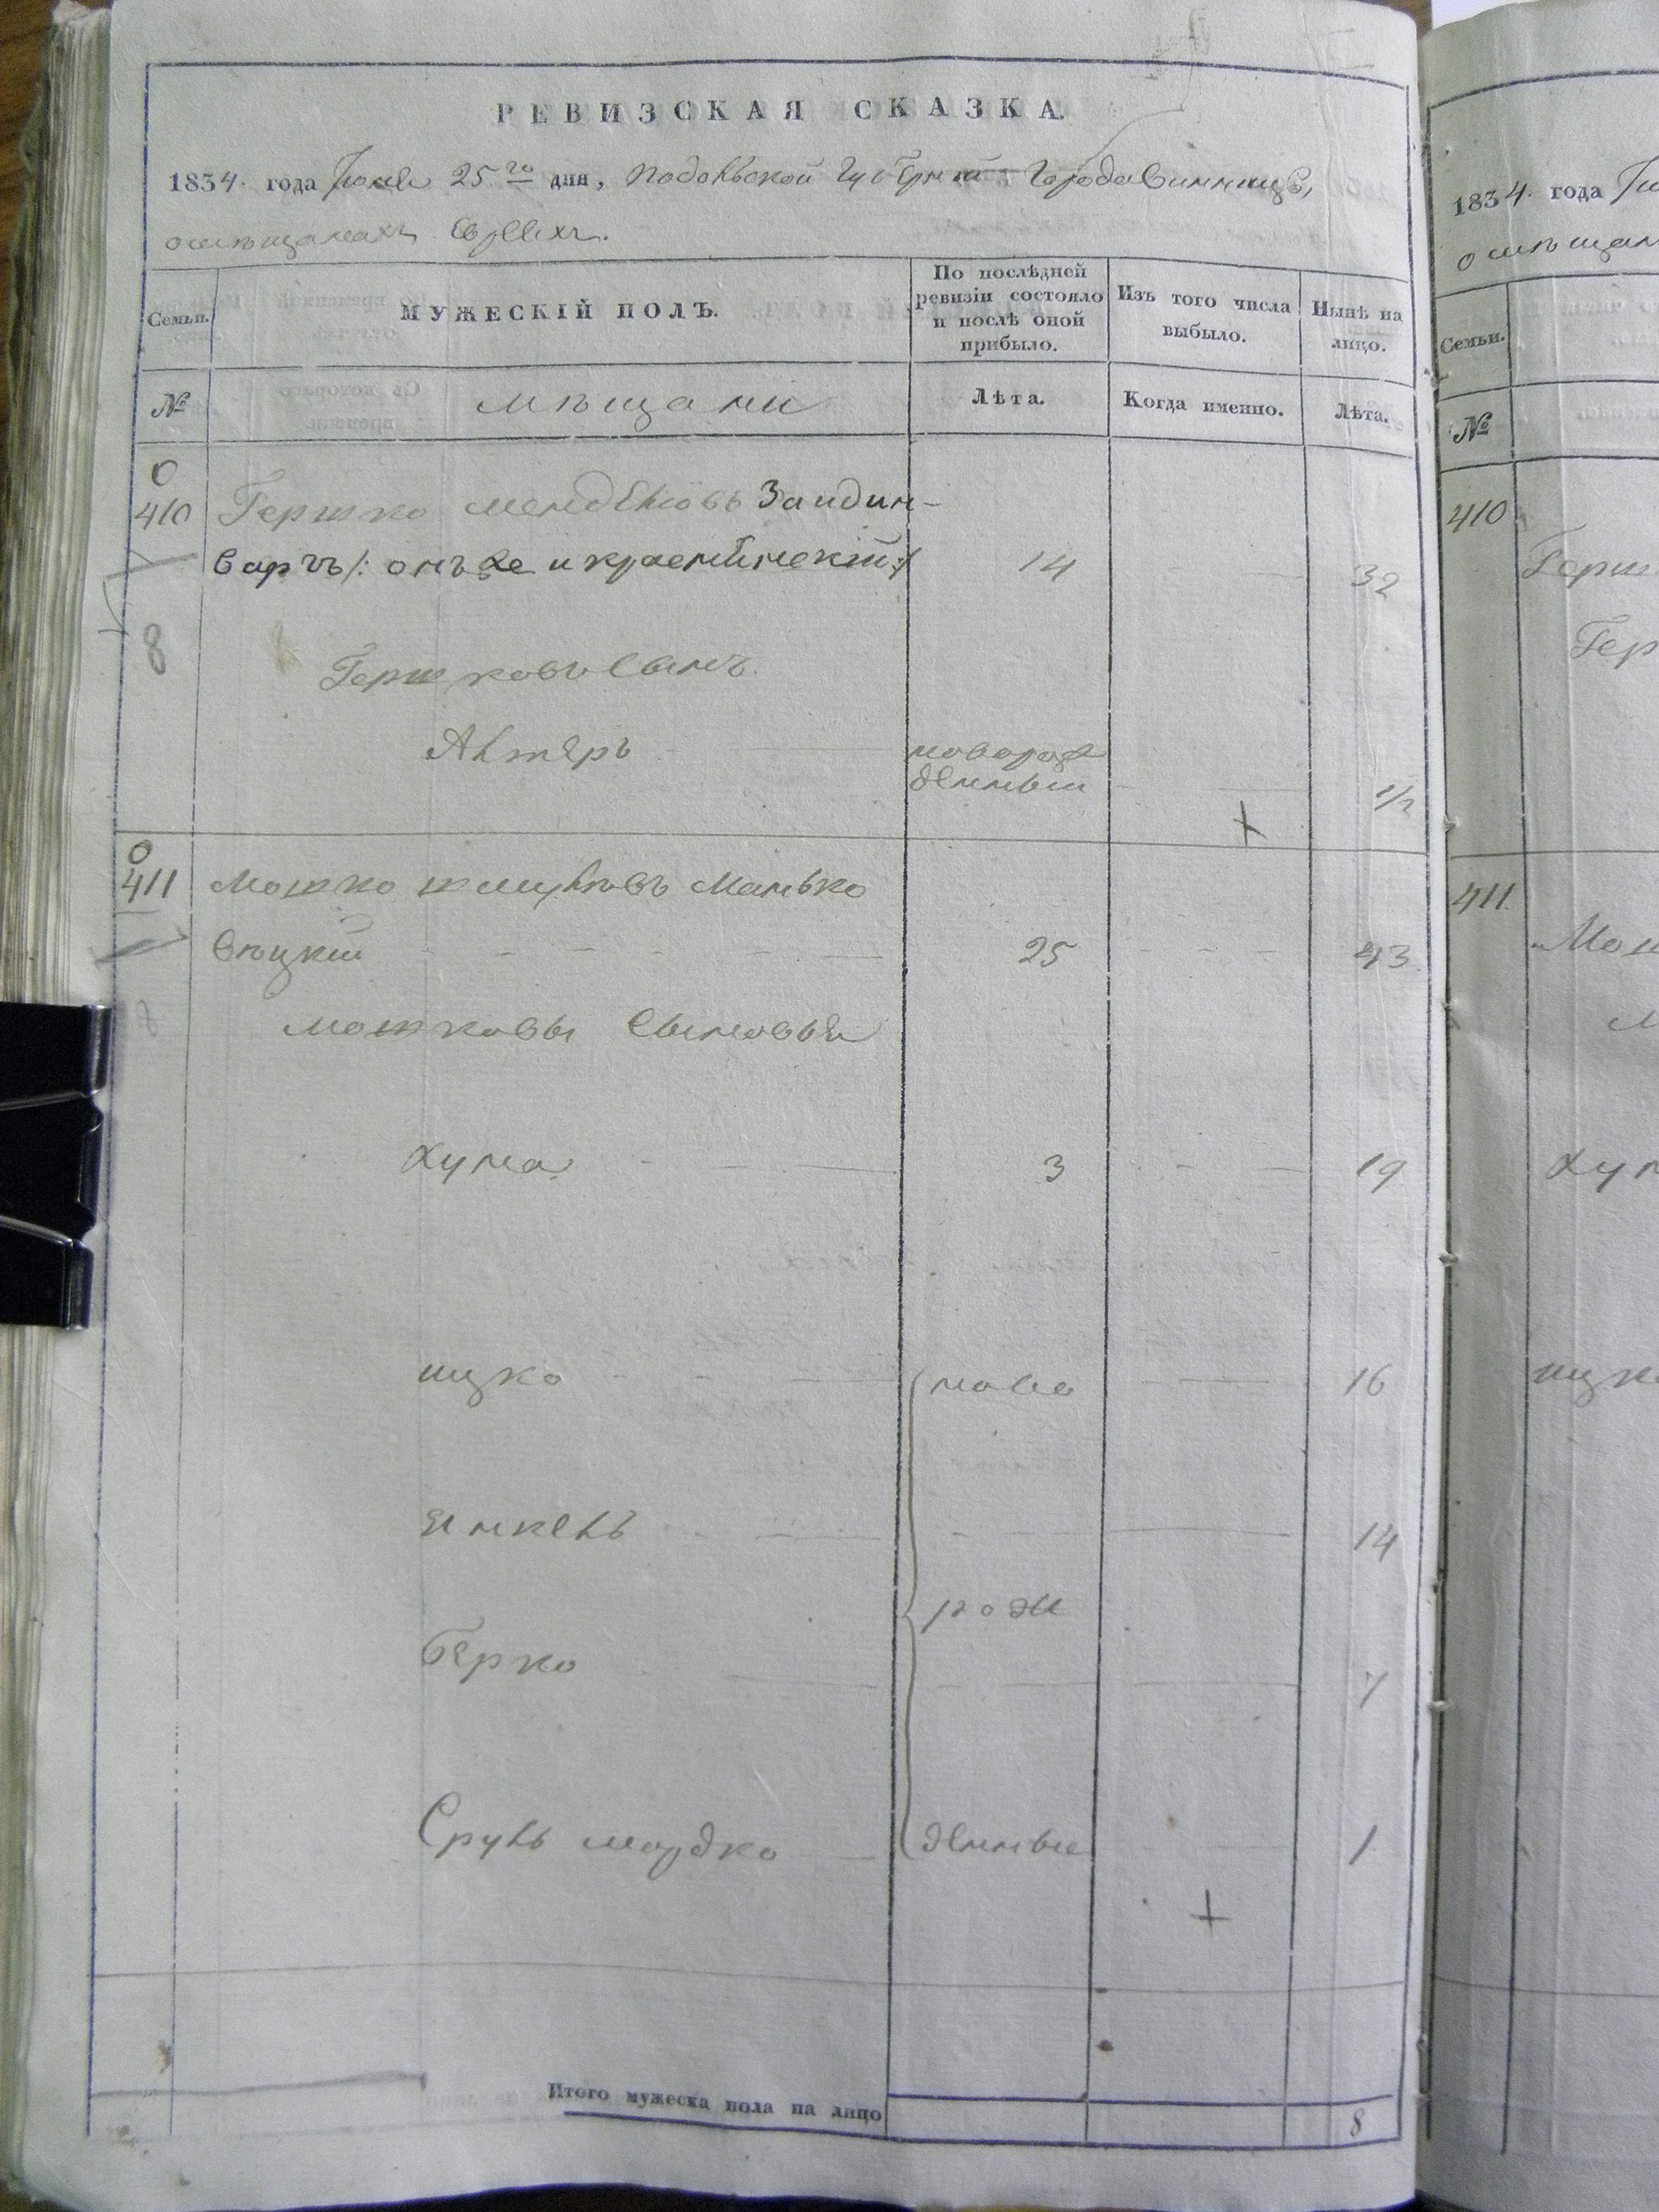 РЕВИЗСКАЯ СКАЗКА.
1834. года 25го дня, Подольской Губернии Города Винницы,
о мѣщанахъ Евреяхъ.
Семьи.
МУЖЕСКІЙ ПОЛЪ.
По послѣдней ревизіи состояло и послѣ оной прибыло.
Изъ того числа выбыло.
Нынѣ на лицо.
№
мѣщане
Лѣта.
Когда именно.
Лѣта.
410 Гершко Менделіовъ Зайдин-
онъ же и 14 32
8
Гершковъ Сынъ
Алтеръ новорож
денный 1/2
411 Мошко Шмулiовъ Манько
вецкій 25 43
Мошковы Сыновья
3 19
ицко ново 16
янкель 14
рож
Берко 7
Сруль мордко денные 1
Итого мужеска пола на лицо 8
1834. года
о мѣщан
Семьи.
№
410
Герш
Гер
411
Мош
ицк